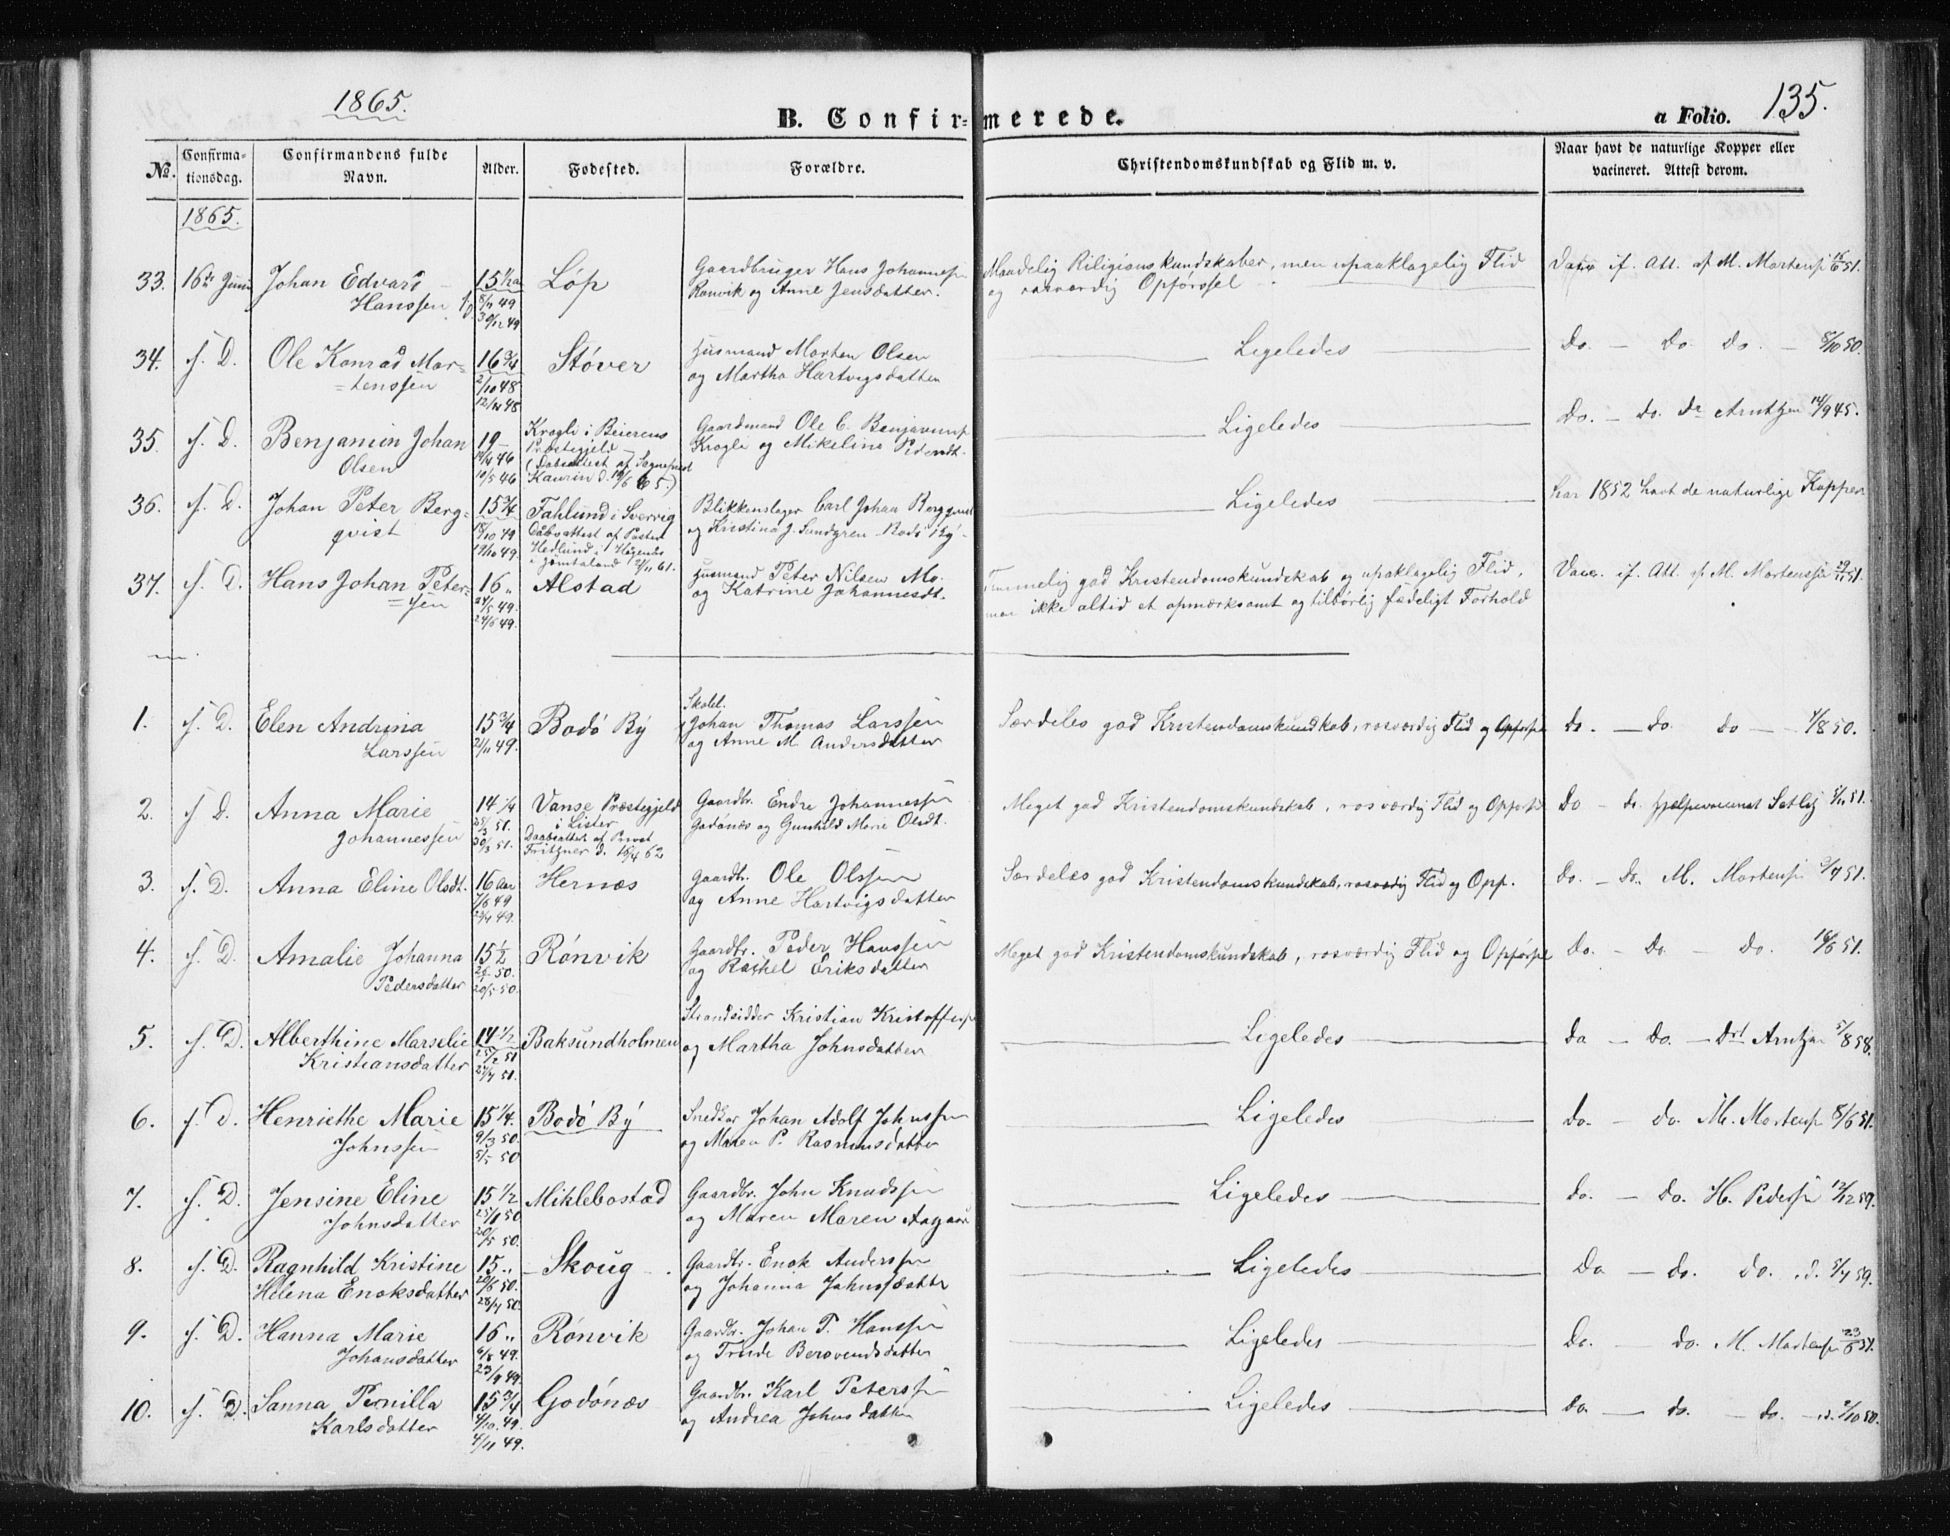 1865.
B. Confirmerede.
a Folio. 135.
No. Confirmationsdag. Confirmandens fulde Navn. Alder. Fødested. Forældre. Christendomskundskab og Flid m. v. Naar havt de naturlige Kopper eller vaccineret. Attest derom.
1865.
33. 16de Juni Johan Edvard 15 1/2 Løp Gaardbruger Hans Johannes Maadelig Riligionskundskaber, men upaaklagelig Flid if. Att. af M. Mortens 51.
Hanssen 49 Rønvik og Anne Jensdatter. og rosværdig Opførssel
30/12 49
34. f. D. Ole Konrad Mor= 16 3/4 Støver Husmand Morten Olsen Ligeledes Do. — Do Do. — 8/10 50.
=tenssen 2/10 48 og Martha Hartvigsdatter
12/11 48
35. f. D. Benjamin Johan 19 Krogli i Beierens Gaardmand Ole C. Ligeledes Do. — Do. Dr Arntzen 14/9 45.
Olsen 46 Præstegjeld Krogli og Mikeline
10/5 46 (Døbsattest af Sognepræst
Kaurin d. 65.)
36. f. D. Johan Peter Berg= 15 3/4 Fahlund i Sverrig Blikkenslager Carl Johan Ligeledes har 1852 havt de naturlige Kopper
qvist 18/10 49 Døbsattest af Pastor og Kristina J. Sundgren Bodø By
19/10 49. Hedlund i
i Jämtaland 61.
37. f. D. Hans Johan Peter= 16 " Alstad Husmand Peter Nilsen Mo. Temmelig god Kristendomskundskab og upaaklagelig Flid, Vacc. if. Att. af M. Mortenss 51.
=sen 49. og Katrine Johannesdt. men ikke altid et opmærksomt og tilbørlig sædeligt Forhold
24/6 49.
1. f. D. Elen Andrina 15 3/4 Bodø By Skolel. Johan Thomas Larssen Særdeles god Kristendomskundkab, rosværdig Flid og Opførsel Do. — Do. Do — 1/8 50.
Larssen 2/11 49. og Anne M. Andersdatter
2. f D. Anna Marie 14 1/4 Vanse Præstegjeld Gaardbr. Endre Johannessen Meget god Kristendomskundskab, rosværdig Flid og Opførsel Do — Do. 51.
Johannessen 25/3 51. i Lister Godønæs og Gunhild Marie Olsdt.
30/3 51. Daabsattest af Provst
Fritzner d. 16/4 62
3. f. D. Anna Eline Olsdt. 16 Aar Hernæs Gaardbr. Ole Olssen Særdeles god Kristendomskundskab, rosværdig Flid og Opp. Do. — Do. M. Mortens 9/7 51.
7/6 49 og Anne Hartvigsdatter
49.
4. f. D. Amalie Johanna 15 1/2 Rønvik Gaardbr. Peder Hanssen Meget god Kristendomskundskab, rosværdig Flid og Opførsel Do. — Do — Do. 16/6 51.
Pedersdatter 50. og Rachel Eriksdatter
20/5 50.
5. f. D. Alberthine Marselie 14 1/2 Baksundholmen Strandsidder Kristian Kristoffers Ligeledes Do — Do. — Drt Arntzen 5/8 58.
Kristiansdatter 25/2 51 og Martha Johnsdatter
27/4 51.
6. f. D. Henriethe Marie 15 1/4. Bodø By Snedker Johan Adolf Johnssen Ligeledes Do. — Do. M. Mortens 8/6 51.
Johnssen 9/3 50. og Maren P. Rasmusdatter
5/5 50
7. f. D. Jensine Eline 15 1/2 Miklebostad Gaardbr. John Knudssen Ligeledes Do. — Do. H. Peders 12/12 59.
Johnsdatter 25/1 50 og Maren Maren Aagaard
20/5 50.
8. f. D. Ragnhild Kristine 15 " Skoug Gaardbr. Enok Anderssen Ligeledes Do — Do. Do. d. 5/7 59.
Helena Enoksdatter 20/6 50. og Johanna Johnsdatter
28/7 50.
9. f. D. Hanna Marie 16 " Rønvik Gaardbr. Johan T. Hanssen Ligeledes Do. — Do. M. Mortens 23/6 51.
Johansdatter 6/8 49. og Trude Berovendsdatter
23/9 49.
10. f. D. Sanna Pernilla 15 3/4 Godønæs Gaardbr. Karl Peterssen Ligeledes Do. — Do. — Do. — d. 2/10 50.
Karlsdatter 4/10. 49. og Andrea Johnsdatter
4/11 49.